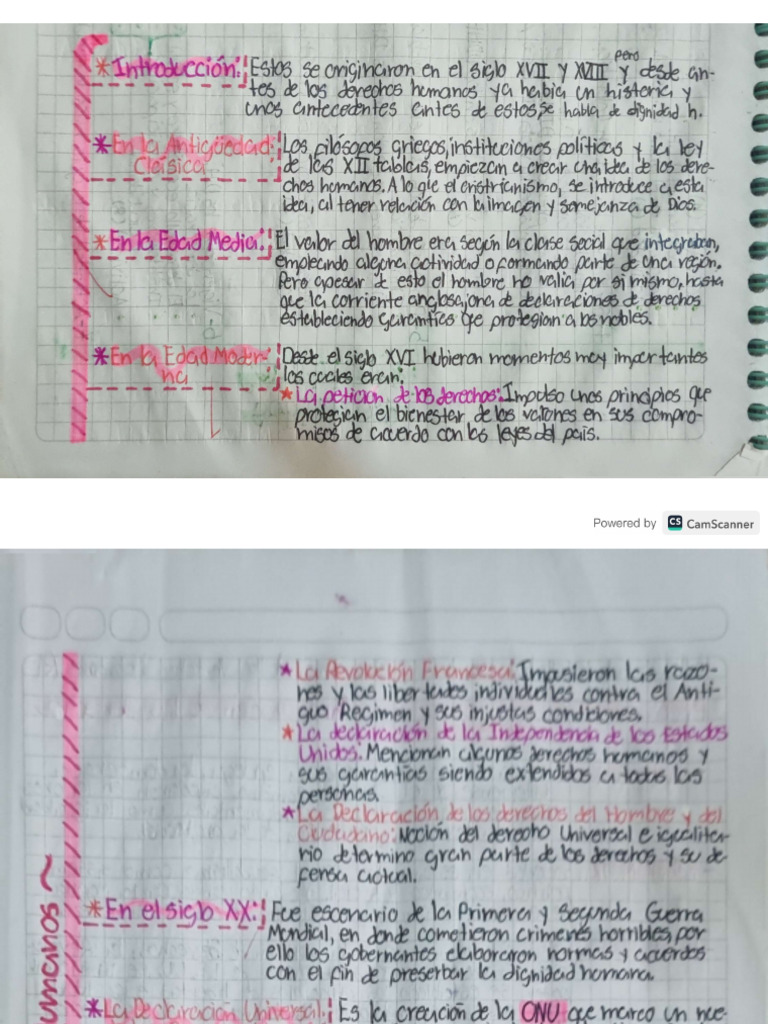 *Introducción: Estos se originaron en el siglo XVII y XVIII pero y desde an-
tes de los derechos humanos ya habia un historia y
unos antecedentes antes de estos, se habla de dignidad h.
*En la Antigüedad Clásica: Los filósofos griegos, instituciones políticas y la ley
de las XII tablas, empiezan a crear una idea de los dere-
chos humanos. A lo que el cristianismo, se introduce a esta
idea, al tener relación con la imagen y semejanza de Dios.
*En la Edad Media: El valor del hombre era según la clase social que integraban,
empleando alguna actividad o formando parte de una región.
Pero apesar de esto el hombre no valía por si mismo, hasta
que la corriente anglosajona de declaraciones de derechos
estableciendo garantías que protegian a los nobles.
*En la Edad Moder-
na Desde el siglo XVI hubieron momentos muy importantes
los cuales eran:
*La peticion de los derechos: Impulso unos principios que
protegian el bienestar de los varones en sus compro-
misos de acuerdo con los leyes del país.
Powered by CS CamScanner
*La Revolución Francesa: Impusieron las razo-
nes y las libertades individuales contra el Anti-
guo Regimen y sus injustas condiciones.
*La declaración de la Independencia de los Estados
Unidos: Mencionan algunos derechos humanos y
sus garantías siendo extendidos a todas las
personas.
*La Declaración de los derechos del Hombre y del
Ciudadano: Noción del derecho Universal e igualita-
rio determino gran parte de los derechos y su de-
fensa actual.
*En el siglo XX: Fue escenario de la Primera y Segunda Guerra
Mundial, en donde cometieron crimenes horribles, por
ello los gobernantes elaboraron normas y acuerdos
con el fin de preserbar la dignidad humana.
umanos ~
*La Declaración Universal: Es la creación de la ONU que marco un nue-